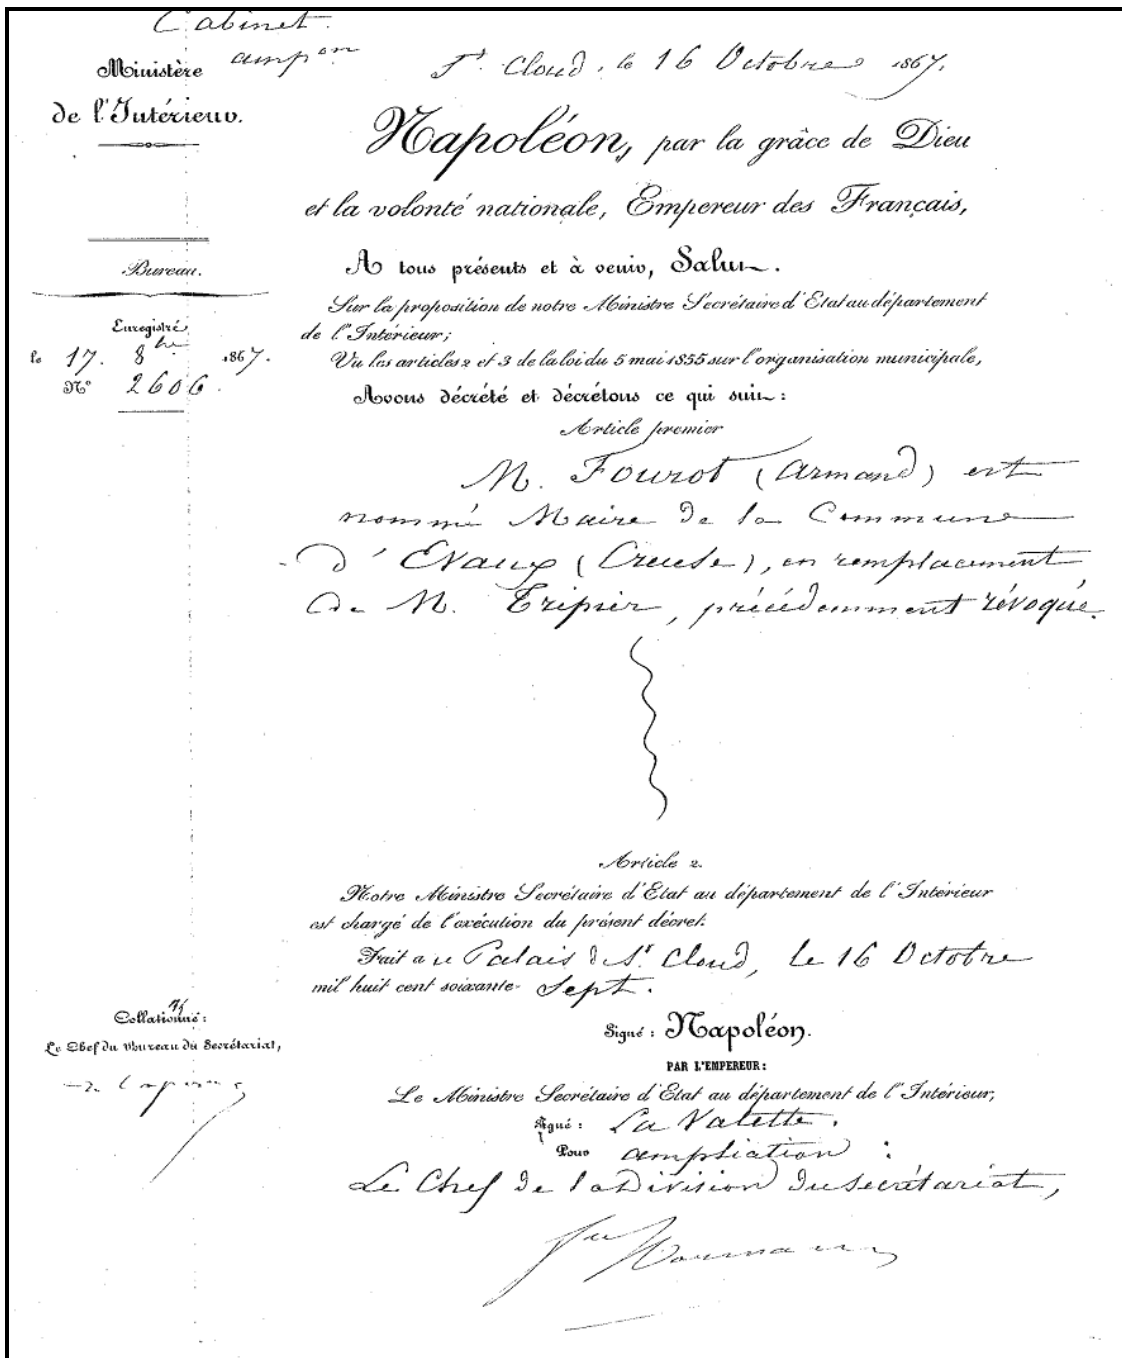 Cabinet.
ampon
Ministère
de l'Intérieur.
St. Cloud, le 16 Octobre 1867.
Napoléon, par la grâce de Dieu
et la volonté nationale, Empereur des Français,
Bureau.
A tous présents et à venir, Salut.
Sur la proposition de notre Ministre Secrétaire d'Etat au département
de l'Intérieur;
Vu les articles 2 et 3 de la loi du 5 mai 1855 sur l'organisation municipale,
Enregistré
le 17. 8bre 1867.
No 2606.
Avons décrété et décrétons ce qui suit:
Article premier
M. Fourot (Armand) est
nommé Maire de la Commune
d'Evaux (Creuse), en remplacement
de M. Tripier, précédemment révoqué.
Article 2.
Notre Ministre Secrétaire d'Etat au département de l'Intérieur
est chargé de l'exécution du présent décret.
Fait au Palais de St. Cloud, le 16 Octobre
mil huit cent soixante-Sept.
Collationné:
Le Chef du Bureau du Secrétariat,
Signé: Napoléon.
PAR L'EMPEREUR:
Le Ministre Secrétaire d'Etat au département de l'Intérieur,
Signé: La Valette.
Pour ampliation:
Le Chef de la Division du Secrétariat,